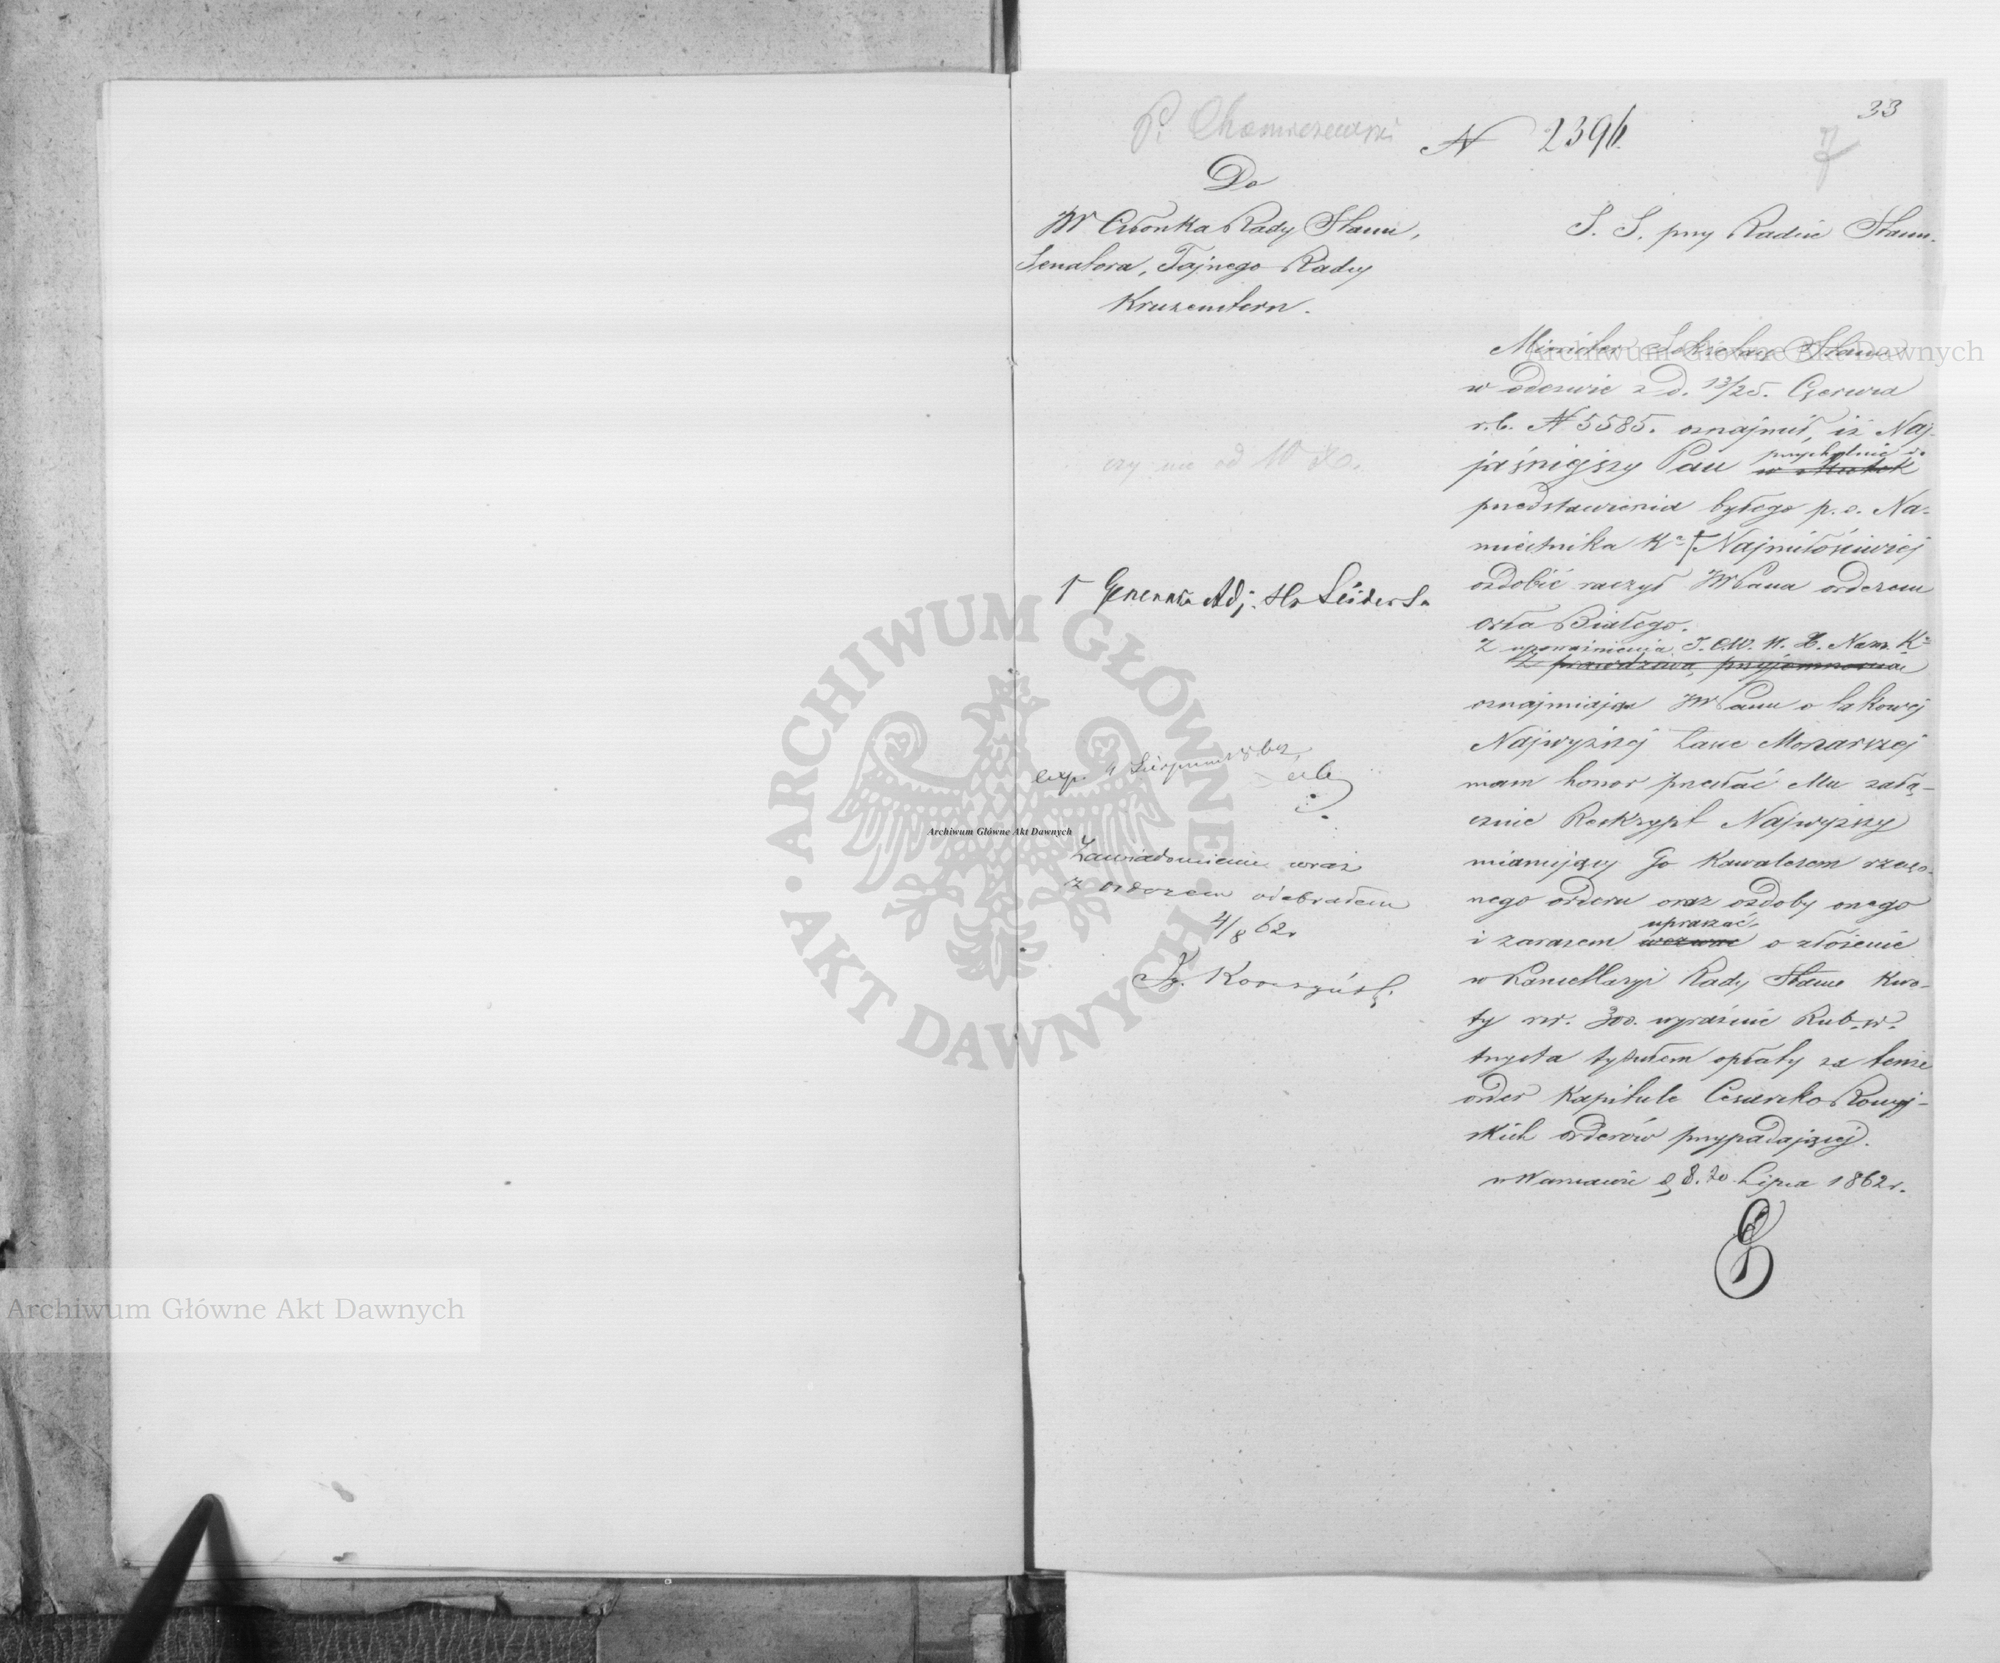 33
P. Chomiczewski
N 2396.
7
Do
JW Członka Rady Stanu,
Senatora, Tajnego Radcy
Kruzenstern.
S. S. przy Radzie Stanu.
Minister Sekretarz Stanu
w odezwie z d. 13/25. Czerwca
r. b. N 5585. oznajmił, iż Naj-
jaśniejszy Pan przychylnie do
w skutek
przedstawienia byłego p. o. Na-
miestnika Kr. Najmiłościwiej
ozdobić raczył JWPana orderem
Orła Białego.
Z upoważnienia J. C. W. W. X. Nam. Kr.
Z prawdziwą przyjemnością
oznajmiając JWPanu o takowej
Najwyższej Łasce Monarszej
mam honor przesłać Mu załą-
cznie Reskrypt Najwyższy
mianujący Go Kawalerem rzeczo-
nego orderu oraz ozdoby onego
i zarazem upraszać
wezwać o złożenie
w Kancellaryi Rady Stanu kwo-
ty rsr. 300. wyraźnie Rub. sr.
trzysta tytułem opłaty za tenże
order Kapitule Cesarsko Rossyj-
skich orderów przypadającej.
w Warszawie d. 8. 20 Lipca 1862 r.
czy nie od W. X.
Generała Adj. Hr Lüdersa
exp. 4 Sierpnia 1862
Zawiadomienie wraz
z orderem odebrałem
4/8 62.
Archiwum Główne Akt Dawnych
Archiwum Główne Akt Dawnych
Archiwum Główne Akt Dawnych
ARCHIWUM GŁÓWNE
AKT DAWNYCH